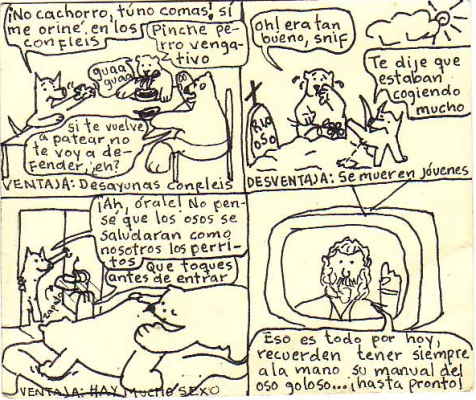 ¡No cachorro, tú no comas! sí
me oriné en los
confleis
Pinche pe-
rro venga-
tivo
guaa
guaa
Si te vuelve
a patear, no
te voy a de-
fender, ¿eh?
VENTAJA: Desayunas confleis
¡oh! era tan
bueno, snif
Te dije que
estaban
cogiendo
mucho
OSO
DESVENTAJA: Se mueren jóvenes
¡Ah, órale! No pen-
sé que los osos se
saludaran como
nosotros los perri-
tos
Que toques
antes de entrar
VENTAJA: HAY MUCHO SEXO
Eso es todo por hoy,
recuerden tener siempre
a la mano su manual del
oso goloso...¡hasta pronto!